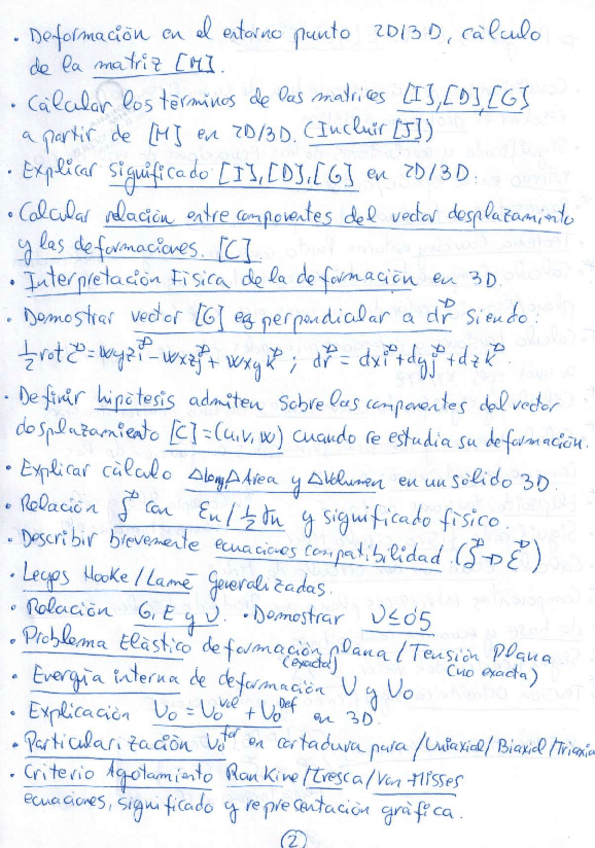 · Deformación en el entorno punto 2D/3D, cálculo
de la matriz [M].
· Cálcular los términos de las matrices [I],[D],[G]
a partir de [M] en 2D/3D. (Incluir [J])
· Explicar significado [I],[D],[G] en 2D/3D.
· Calcular relación entre componentes del vector desplazamiento
y las deformaciones. [C]
· Interpretación Física de la deformación en 3D.
· Demostrar vector [G] es perpendicular a dr⃗ siendo:
½ rot c⃗ = wyz i⃗ - wxz j⃗ + wxy k⃗ ; dr⃗ = dx i⃗ + dy j⃗ + dz k⃗.
· Definir hipótesis admiten sobre las componentes del vector
desplazamiento [C]=(u,v,w) cuando se estudia su deformación.
· Explicar cálculo Δlong, ΔÁrea y ΔVolumen en un sólido 3D.
· Relación con εn / ½ γn y significado físico.
· Describir brevemente ecuaciones compatibilidad
· Leyes Hooke/Lamé generalizadas.
· Relación G, E y υ. · Demostrar υ≤0'5
· Problema Elástico deformación plana / Tensión Plana
(exacta) (no exacta)
· Energía interna de deformación U y U₀
· Explicación U₀ = U₀ᵛᵒˡ + U₀ᵈᵉᶠ en 3D.
· Particularización U₀ en cortadura pura /Uniaxial/Biaxial/Triaxia
· Criterio Agotamiento Rankine/Tresca/Von-Misses
ecuaciones, significado y representación gráfica.
2